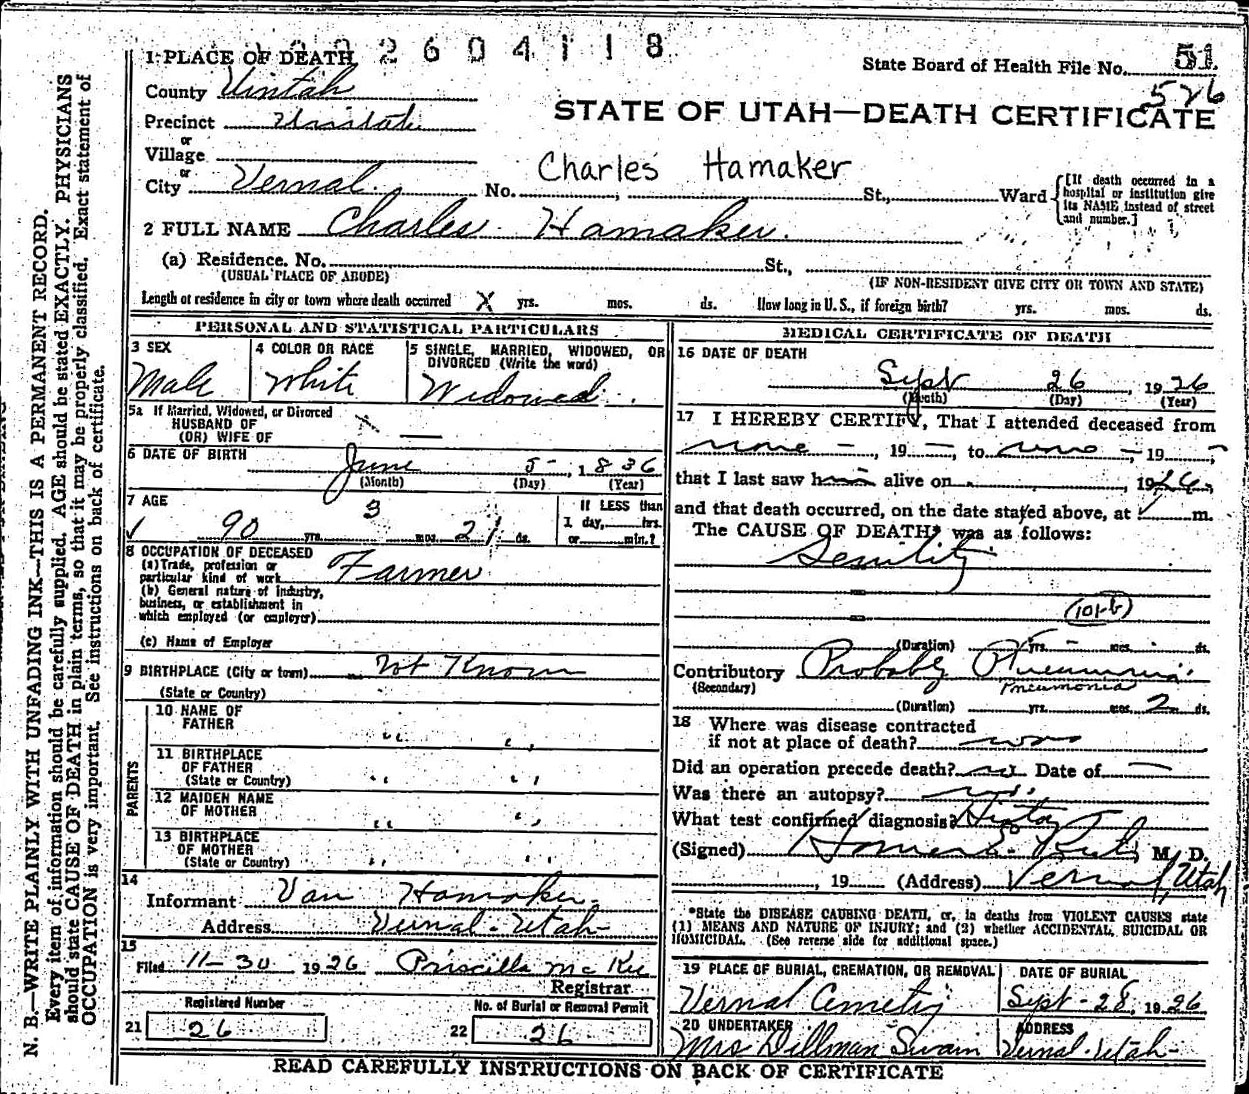 2604118
1 PLACE OF DEATH
State Board of Health File No. 51
526
County Uintah
STATE OF UTAH—DEATH CERTIFICATE
Precinct Uintah
or
Village
or
City Vernal. No. ; St., Ward
Charles Hamaker
[If death occurred in a hospital or institution give its NAME instead of street and number.]
2 FULL NAME Charles Hamaker.
(a) Residence. No. St.,
(USUAL PLACE OF ABODE) (IF NON-RESIDENT GIVE CITY OR TOWN AND STATE)
Length of residence in city or town where death occurred X yrs. mos. ds. How long in U. S., if foreign birth? yrs. mos. ds.
PERSONAL AND STATISTICAL PARTICULARS
3 SEX
Male
4 COLOR OR RACE
White
5 SINGLE, MARRIED, WIDOWED, OR DIVORCED (Write the word)
Widowed.
5a If Married, Widowed, or Divorced
HUSBAND OF
(OR) WIFE OF
6 DATE OF BIRTH
June 5 - , 1836
(Month) (Day) (Year)
7 AGE
90 yrs. 3 mos. 21 ds.
If LESS than
1 day, hrs.
or min.?
8 OCCUPATION OF DECEASED
(a) Trade, profession or
particular kind of work Farmer
(b) General nature of industry,
business, or establishment in
which employed (or employer)
(c) Name of Employer
9 BIRTHPLACE (City or town) Not Known
(State or Country)
PARENTS
10 NAME OF
FATHER " "
11 BIRTHPLACE
OF FATHER
(State or Country) " "
12 MAIDEN NAME
OF MOTHER " "
13 BIRTHPLACE
OF MOTHER
(State or Country) " "
14
Informant Van Hamaker.
Address Vernal. Utah-
15
Filed 11-30 1926 Priscilla McKee
Registrar
Registered Number
21 26
No. of Burial or Removal Permit
22 26
MEDICAL CERTIFICATE OF DEATH
16 DATE OF DEATH
Sept 26 , 1926
(Month) (Day) (Year)
17 I HEREBY CERTIFY, That I attended deceased from
none - , 19 — , to - 19 -
that I last saw h alive on , 1926,
and that death occurred, on the date stated above, at m.
The CAUSE OF DEATH* was as follows:
Senility
(101-b)
(Duration) yrs. - mos. ds.
Contributory Probably Pneumonia
(Secondary) Pneumonia
(Duration) yrs. mos. 2 ds.
18 Where was disease contracted
if not at place of death?
Did an operation precede death? no Date of —
Was there an autopsy? no.
What test confirmed diagnosis? History
(Signed) Homer E. M. D.
, 19 (Address) Vernal, Utah
*State the DISEASE CAUSING DEATH, or, in deaths from VIOLENT CAUSES state
(1) MEANS AND NATURE OF INJURY; and (2) whether ACCIDENTAL, SUICIDAL OR
HOMICIDAL. (See reverse side for additional space.)
19 PLACE OF BURIAL, CREMATION, OR REMOVAL
Vernal Cemetery
DATE OF BURIAL
Sept - 28, 1926
20 UNDERTAKER
Mrs Dillman Swain
ADDRESS
Vernal. Utah-
READ CAREFULLY INSTRUCTIONS ON BACK OF CERTIFICATE
N. B.—WRITE PLAINLY WITH UNFADING INK—THIS IS A PERMANENT RECORD.
Every item of information should be carefully supplied. AGE should be stated EXACTLY. PHYSICIANS
should state CAUSE OF DEATH in plain terms, so that it may be properly classified. Exact statement of
OCCUPATION is very important. See instructions on back of certificate.